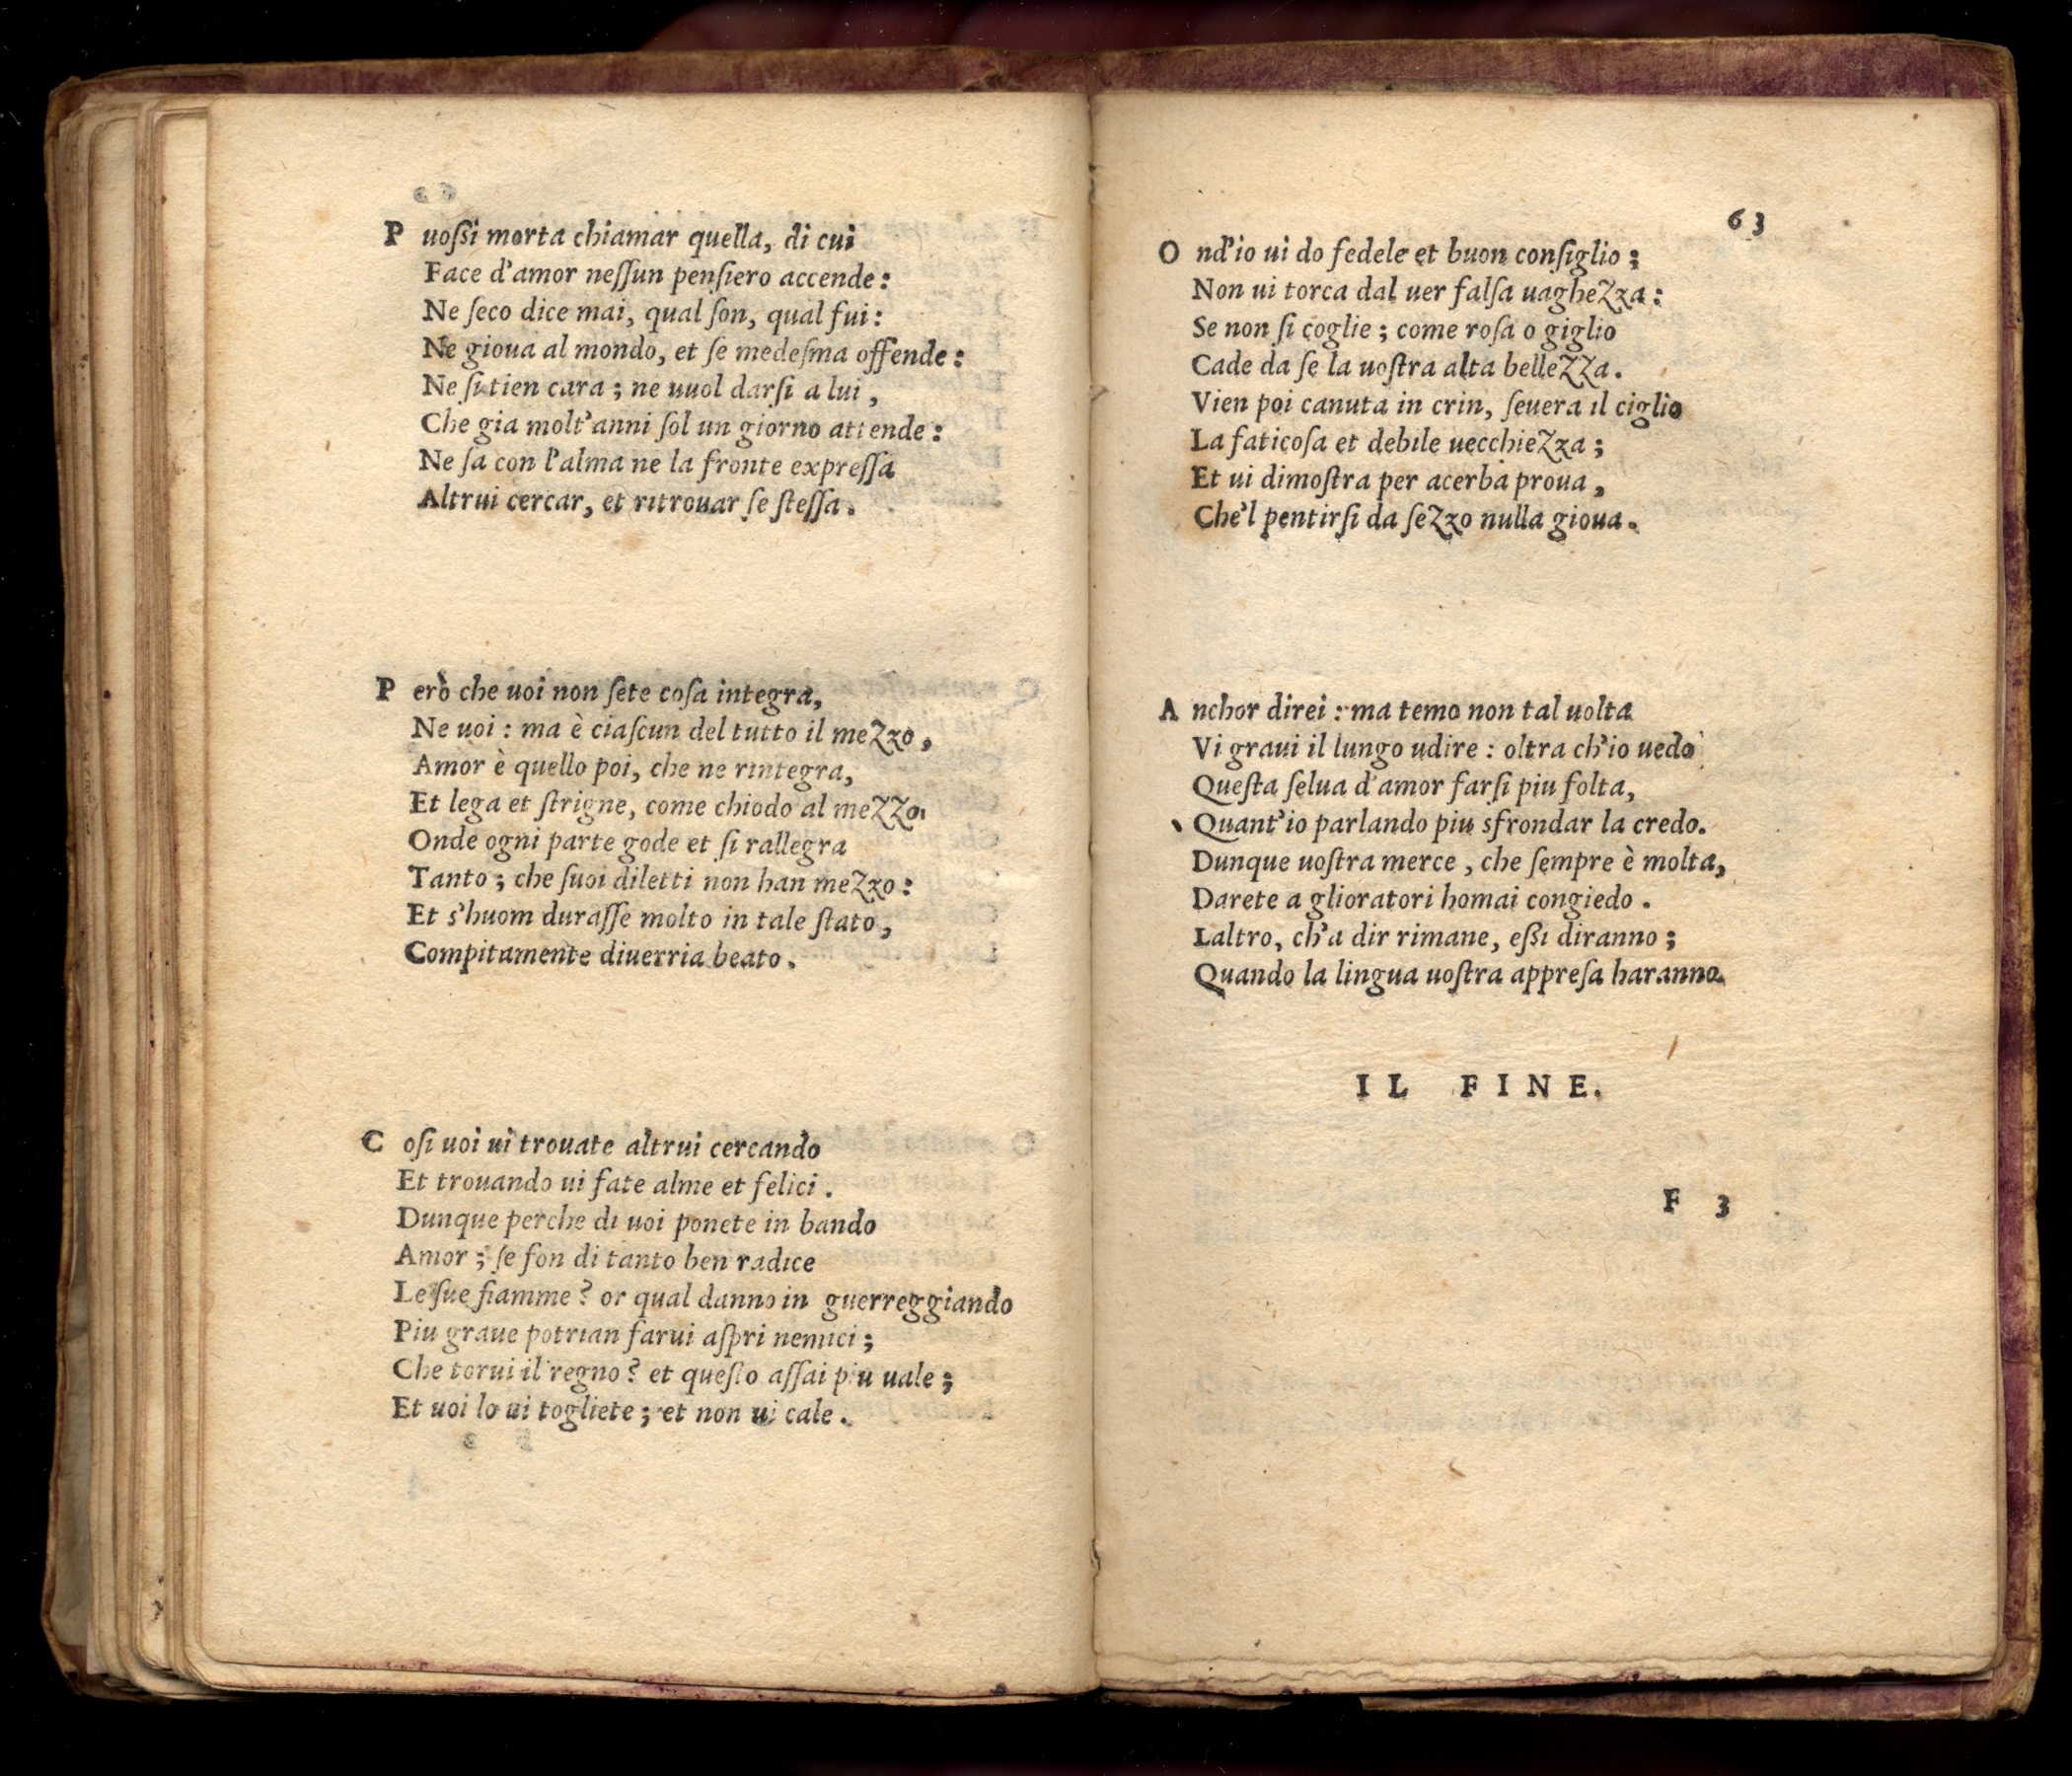 P uoſſi morta chiamar quella, di cui
Face d'amor neſſun penſiero accende:
Ne ſeco dice mai, qual ſon, qual fui:
Ne gioua al mondo, et ſe medeſma offende:
Ne ſi tien cara; ne uuol darſi a lui,
Che gia molt'anni ſol un giorno attende:
Ne ſa con l'alma ne la fronte expreſſa
Altrui cercar, et ritrouar ſe ſteſſa.
P erò che uoi non ſete coſa integra,
Ne uoi: ma è ciaſcun del tutto il mezzo,
Amor è quello poi, che ne rintegra,
Et lega et ſtrigne, come chiodo al mezzo,
Onde ogni parte gode et ſi rallegra
Tanto; che ſuoi diletti non han mezzo:
Et s'huom duraſſe molto in tale ſtato,
Compitamente diuerria beato.
C oſi uoi ui trouate altrui cercando
Et trouando ui fate alme et felici.
Dunque perche di uoi ponete in bando
Amor; ſe ſon di tanto ben radice
Le ſue fiamme? or qual danno in guerreggiando
Piu graue potrian farui aſpri nemici;
Che torui il regno? et queſto aſſai piu uale;
Et uoi lo ui togliete; et non ui cale.
63
O nd'io ui do fedele et buon conſiglio;
Non ui torca dal uer falſa uaghezza:
Se non ſi coglie; come roſa o giglio
Cade da ſe la uoſtra alta bellezza.
Vien poi canuta in crin, ſeuera il ciglio
La faticoſa et debile uecchiezza;
Et ui dimoſtra per acerba proua,
Che'l pentirſi da ſezzo nulla gioua.
A nchor direi: ma temo non tal uolta
Vi graui il lungo udire: oltra ch'io uedo
Queſta ſelua d'amor farſi piu folta,
Quant'io parlando piu sfrondar la credo.
Dunque uoſtra merce, che ſempre è molta,
Darete a glioratori homai congiedo.
Laltro, ch'a dir rimane, eſſi diranno;
Quando la lingua uoſtra appreſa haranno.
IL FINE.
F 3